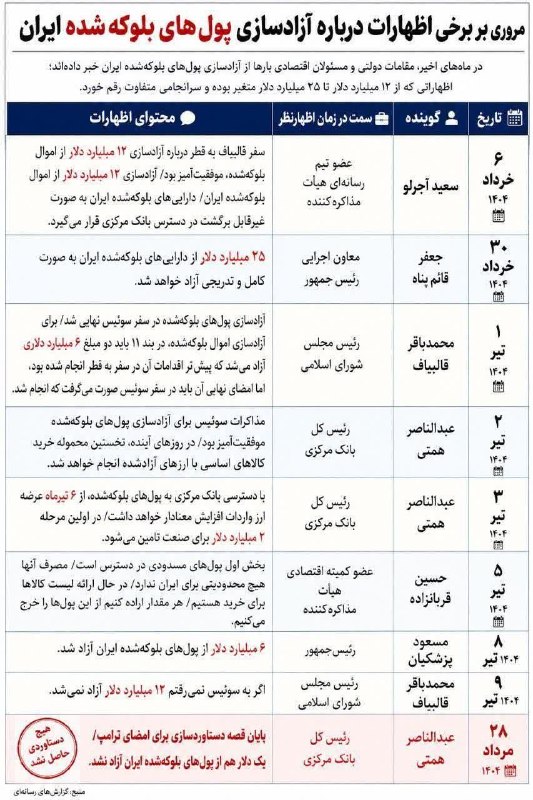 مروری بر برخی اظهارات درباره آزادسازی پول‌های بلوکه شده ایران
در ماه‌های اخیر، مقامات دولتی و مسئولان اقتصادی بارها از آزادسازی پول‌های بلوکه‌شده ایران خبر داده‌اند؛
اظهاراتی که از ۱۲ میلیارد دلار تا ۲۵ میلیارد دلار متغیر بوده و سرانجامی متفاوت رقم خورد.
تاریخ
گوینده
سمت در زمان اظهارنظر
محتوای اظهارات
۶
خرداد
۱۴۰۴
سعید آجرلو
عضو تیم
رسانه‌ای هیأت
مذاکره‌کننده
سفر قالیباف به قطر درباره آزادسازی ۱۲ میلیارد دلار از اموال
بلوکه‌شده، موفقیت‌آمیز بود/ آزادسازی ۱۲ میلیارد دلار از اموال
بلوکه‌شده ایران/ دارایی‌های بلوکه‌شده ایران به صورت
غیرقابل برگشت در دسترس بانک مرکزی قرار می‌گیرد.
۳۰
خرداد
۱۴۰۴
جعفر
قائم پناه
معاون اجرایی
رئیس جمهور
۲۵ میلیارد دلار از دارایی‌های بلوکه‌شده ایران به صورت
کامل و تدریجی آزاد خواهد شد.
۱
تیر
۱۴۰۴
محمدباقر
قالیباف
رئیس مجلس
شورای اسلامی
آزادسازی پول‌های بلوکه‌شده در سفر سوئیس نهایی شد/ برای
آزادسازی اموال بلوکه‌شده، در بند ۱۱ باید دو مبلغ ۶ میلیارد دلاری
آزاد می‌شد که پیش‌تر اقدامات آن در سفر به قطر انجام شده بود،
اما امضای نهایی آن باید در سفر سوئیس صورت می‌گرفت که انجام شد.
۲
تیر
۱۴۰۴
عبدالناصر
همتی
رئیس کل
بانک مرکزی
مذاکرات سوئیس برای آزادسازی پول‌های بلوکه‌شده
موفقیت‌آمیز بود/ در روزهای آینده، نخستین محموله خرید
کالاهای اساسی با ارزهای آزادشده انجام خواهد شد.
۳
تیر
۱۴۰۴
عبدالناصر
همتی
رئیس کل
بانک مرکزی
با دسترسی بانک مرکزی به پول‌های بلوکه‌شده، از ۶ تیرماه عرضه
ارز واردات افزایش معنادار خواهد داشت/ در اولین مرحله
۲ میلیارد دلار برای صنعت تامین می‌شود.
۵
تیر
۱۴۰۴
حسین
قربانزاده
عضو کمیته اقتصادی
هیأت
مذاکره‌کننده
بخش اول پول‌های مسدودی در دسترس است/ مصرف آنها
هیچ محدودیتی برای ایران ندارد/ در حال ارائه لیست کالاها
برای خرید هستیم/ هر مقدار اراده کنیم از این پول‌ها را خرج
می‌کنیم.
۸
تیر ۱۴۰۴
مسعود
پزشکیان
رئیس‌جمهور
۶ میلیارد دلار از پول‌های بلوکه‌شده ایران آزاد شد.
۹
تیر ۱۴۰۴
محمدباقر
قالیباف
رئیس مجلس
شورای اسلامی
اگر به سوئیس نمی‌رفتم ۱۲ میلیارد دلار آزاد نمی‌شد.
۲۸
مرداد
۱۴۰۴
عبدالناصر
همتی
رئیس کل
بانک مرکزی
پایان قصه دستاوردسازی برای امضای ترامپ/
یک دلار هم از پول‌های بلوکه‌شده ایران آزاد نشد.
هیچ
دستاوردی
حاصل نشد
منبع: گزارش‌های رسانه‌ای